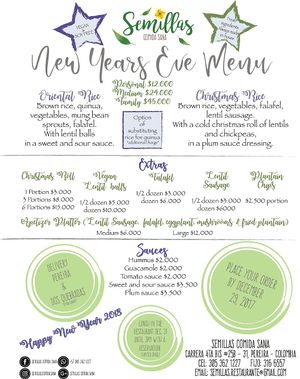 VEGAN
&
SOY FREE
Semillas
COMIDA SANA
New Years Eve Menu
Personal $12.000
Medium $24.000
Family $45.000
Oriental Rice
Brown rice, quinua,
vegetables, mung bean
sprouts, falafel.
With lentil balls
in a sweet and sour sauce.
Option
of
substituting
rice for quinua
Christmas Rice
Brown rice, vegetables, falafel,
lentil sausage.
With a cold christmas roll of lentils
and chickpeas,
in a plum sauce dressing.
Extras
Christmas Roll
1 Portion $3.000
3 Portions $8.000
6 Portions $15.000
Vegan
Lentil balls
1/2 dozen $5.000
dozen $10.000
Falafel
1/2 dozen $3.000
dozen $6.000
Lentil
Sausage
1/2 dozen $3.000
dozen $6.000
Plantain
Chips
$2.500 portion
Apetizer Platter (Lentil Sausage, falafel, eggplant, mushrooms & fried plantain)
Medium $6.000 Large $12.000
Sauces
Hummus $2.000
Guacamole $2.000
Tomato sauce $2.000
Sweet and sour sauce $3.500
Plum sauce $3.500
DELIVERY
PEREIRA
&
DOS QUEBRADAS
PLACE YOUR
ORDER
BY DECEMBER
29, 2017
Happy New Year 2018
LUNCH IN THE
RESTAURANT DEC. 31
UNTIL 3PM WITH A
RESERVATION
SEMILLAS COMIDA SANA
CARRERA 4TA BIS #25B - 31, PEREIRA - COLOMBIA
CEL: 305 362 1227 FIJO: 316 6557
EMAIL: SEMILLAS.RESTAURANTE@GMAIL.COM